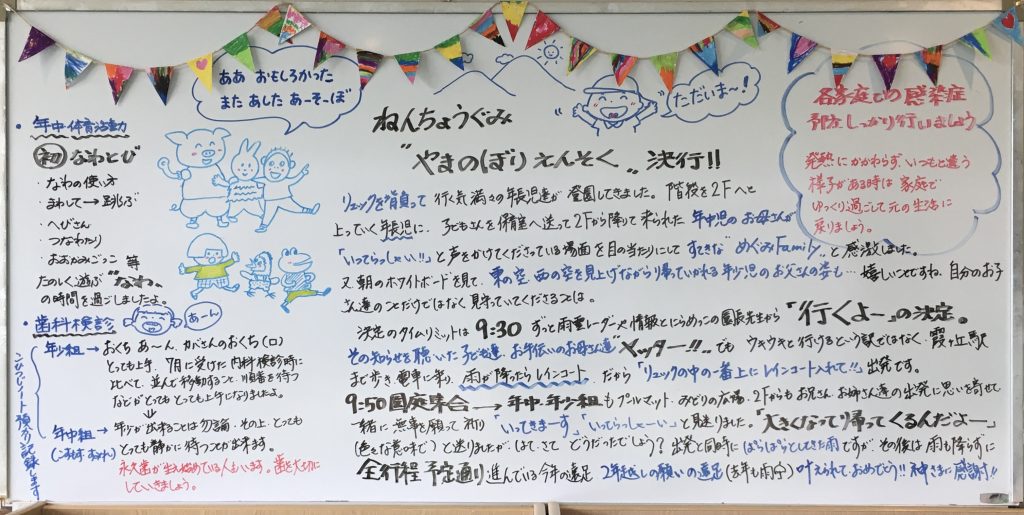 ああ おもしろかった
また あした あーそーぼ
ただいま〜！
各家庭での感染症
予防をしっかり行いましょう
発熱にかかわらず いつもと違う
様子がある時は 家庭で
ゆっくり過ごして元の生活に
戻りましょう。
・年中・体育活動
初 なわとび
・なわの使い方
・まわして→跳ぶ
・へびさん
・つなわたり
・おおかみごっこ 等
たのしく遊ぶ "なわ"。
の時間を過ごしましたよ。
・歯科検診
あーん
年少組→おくち あ〜ん、かばさんのおくち(ロ)
とっても上手 7月に受けた 内科検診時に
比べて、並んで移動すること、順番を待つ
などがとても とても上手になりましたよ。
年中組→年少が出来ることは勿論、その上、とても
とても静かに待つことが出来ます。
永久歯が生え始めている人もいます。歯を大切に
していきましょう。
ねんちょうぐみ
"やまのぼり えんそく" 決行!!
リュックを背負って 行く気満々の年長児達が 登園してきました。階段を2Fへと
上っていく年長児に、子どもさんを保育室へ送って2Fから降りて来られた 年中児のお母さんが
「いってらっしゃーい!!」と声をかけてくださっている場面を目の当たりにして すてきな "めぐみFamily" と感激しました。
又、朝のホワイトボードを見て、東の空、西の空を見上げながら帰っていかれる年少児のお父さんの姿も… 嬉しいことですね、自分のお子
さん達のことだけではなく見守っていてくださることは。
決定のタイムリミットは 9:30 ずっと雨雲レーダーや情報とにらめっこの園長先生から「行くよー」の決定。
その知らせを聴いた子ども達、お手伝いのお母さん達 "ヤッター!!" でも ウキウキと行けるという訳ではなく、霞ヶ丘駅
まで歩き 電車に乗り、雨が降ったらレインコート、だから「リュックの中の一番上にレインコート入れて!!」出発です。
9:50 園庭集会→年中・年少組も プールマット、みどりの広場、2Fからもお兄さん お姉さん達の出発に思いを寄せて
一緒に無事を願って祈り「いってきまーす」「いってらっしゃーい」と見送りました。「大きくなって帰ってくるんだよー」
(色々な意味で)と送りましたが、はて、さて どうだったでしょう? 出発と同時に ぱらぱらっとしてきた雨ですが、その後は雨も降らずに
全行程 予定通り 進んでいる今年の遠足 2年越しの願いの遠足(去年も雨で) 叶えられて、おめでとう!! 神さまに感謝!!